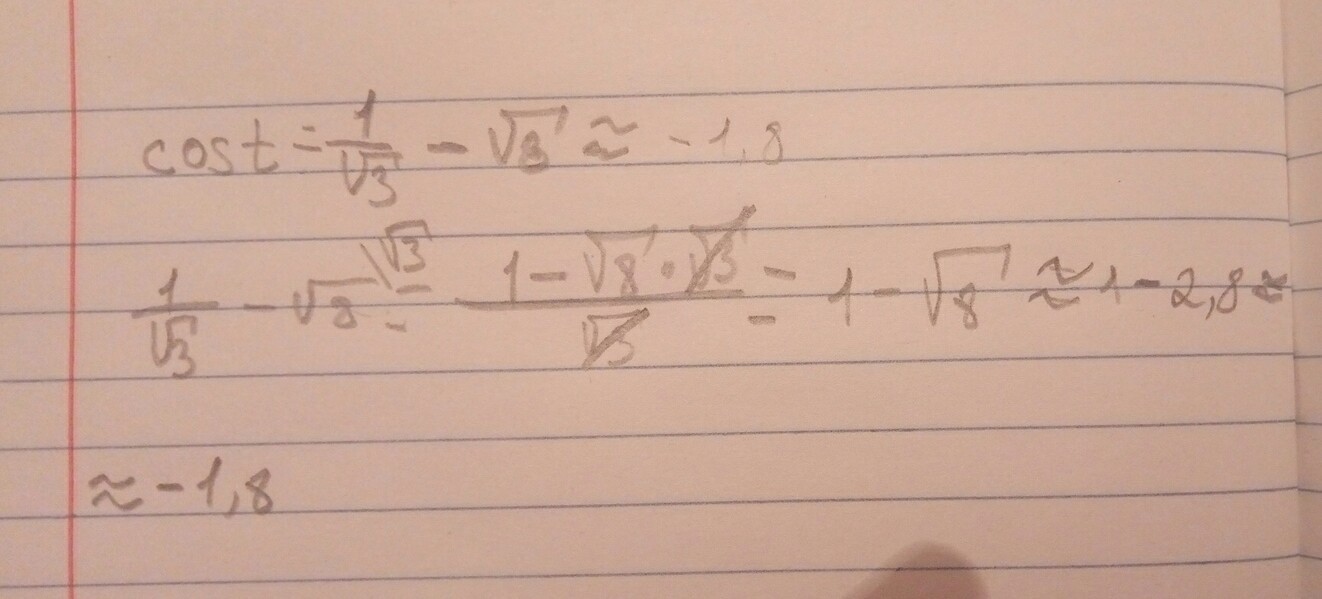 cos t = 1/√3 - √8 ≈ -1,8
1/√3 - √8 \√3 = (1 - √8 · √3)/√3 = 1 - √8 ≈ 1 - 2,8 ≈
≈ -1,8